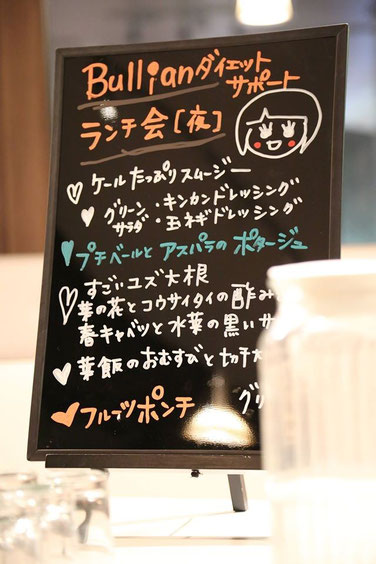 Bullianダイエット
サポート
ランチ会[夜]
ケールたっぷりスムージー
グリーンサラダ
・キンカンドレッシング
・玉ネギドレッシング
プチベールとアスパラのポタージュ
すごいユズ大根
菜の花とコウサイタイの酢み
春キャベツと水菜の黒いサ
菜飯のおむすびと切干大
フルーツポンチ
グリ